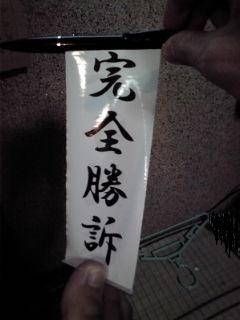 完全勝訴